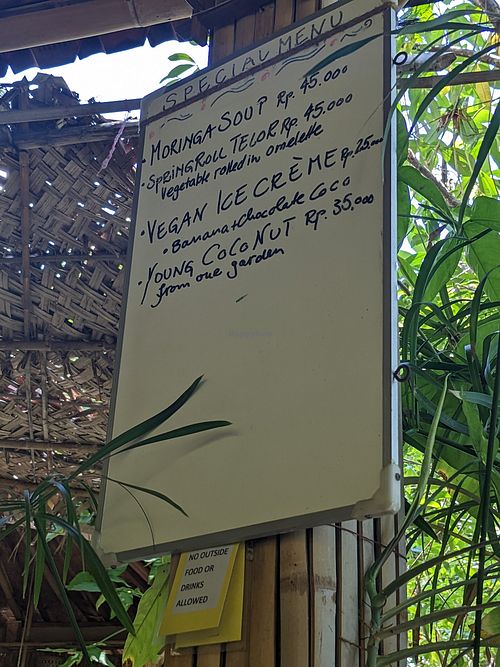 SPECIAL MENU
• MORINGA SOUP Rp. 45.000
• SPRING ROLL TELOR Rp. 45.000
Vegetable rolled in omelette
• VEGAN ICE CRÈME Rp. 25.000
• Banana + Chocolate Coco
• YOUNG COCONUT Rp. 35.000
from our garden
NO OUTSIDE
FOOD OR
DRINKS
ALLOWED